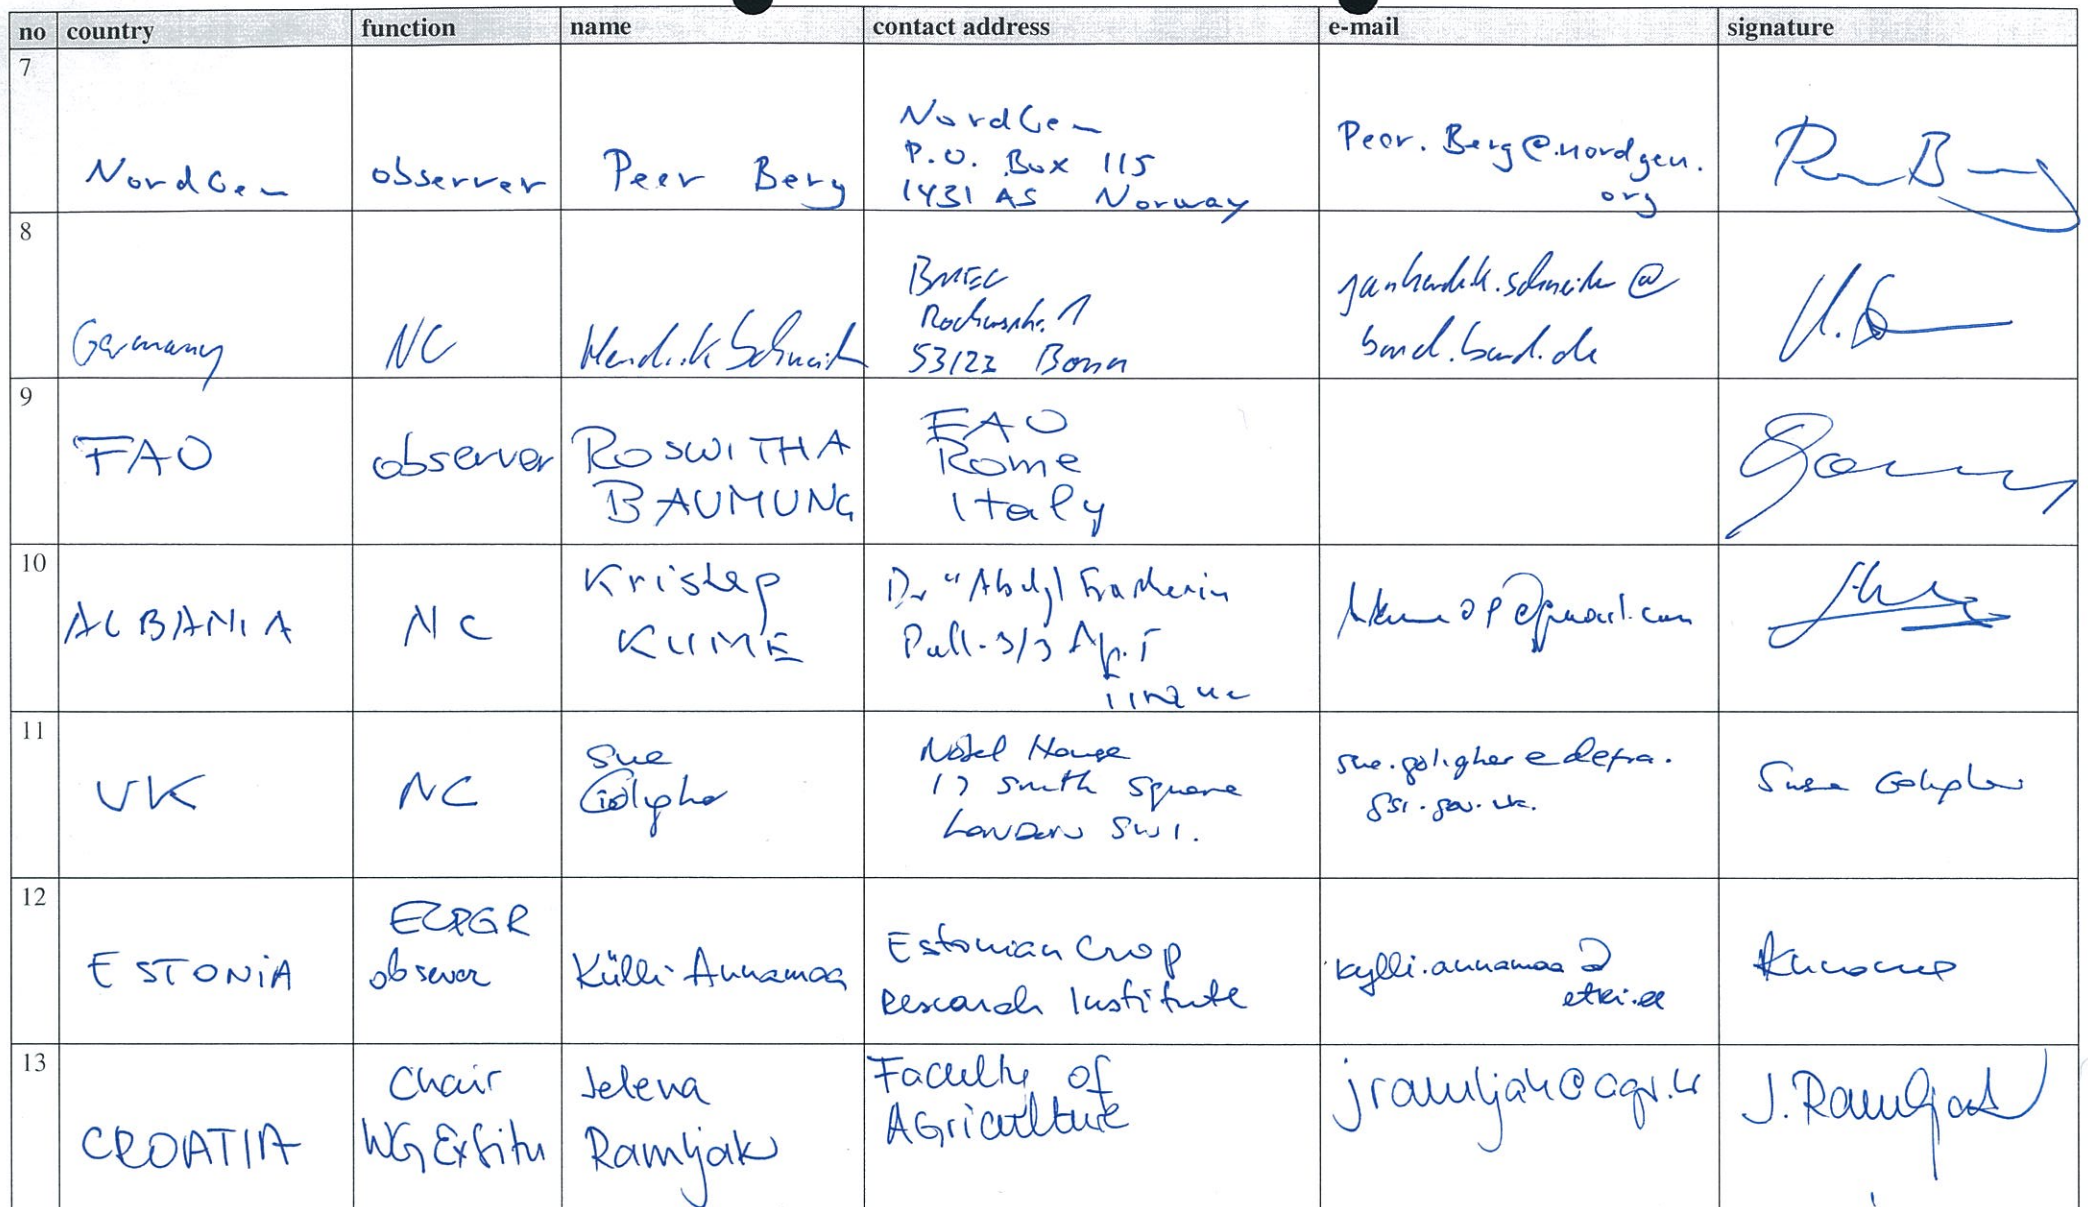 no country function name contact address e-mail signature
7
NordGen observer Peer Berg
NordGen
P.O. Box 115
1431 AS Norway
Peer.Berg@nordgen.
org
8
Germany NC Hendrik Schneider
BMEL
Rochusstr. 1
53123 Bonn
@
9
FAO observer ROSWITHA
BAUMUNG
FAO
Rome
Italy
10
ALBANIA NC Kristaq
KUME
Apt. 5
11
UK NC Sue
Nobel House
17 Smith Square
London SW1.
defra.
gsi.gov.uk.
12
ESTONIA
ECPGR
observer
Külli Annamaa
Estonian Crop
Research Institute
kylli.annamaa@
etki.ee
13
CROATIA
Chair
WG ExSitu
Jelena
Ramljak
Faculty of
AGriculture
jramljak@agr.hr
J. Ramljak